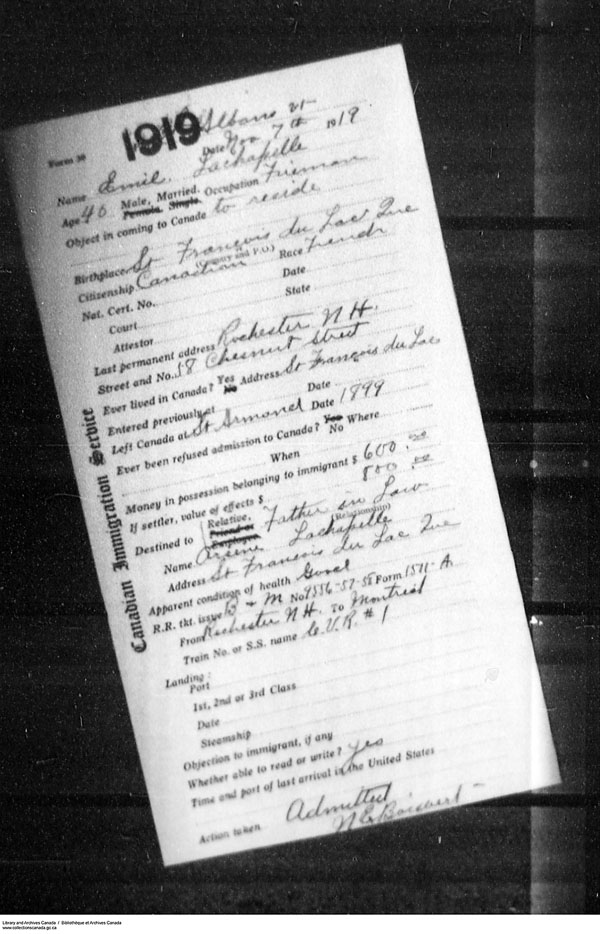 1919 St Albans Vt
Form 30 Date Nov 7th 1919
Name Emil Lachapelle
Age 40 Male, Married. Female, Single. Occupation Fireman
Object in coming to Canada to reside
Birthplace St François du Lac Que
(County and P.O.)
Citizenship Canadian Race French
Nat. Cert. No. Date
Court State
Attestor
Last permanent address Rochester N H.
Street and No. 58 Chesnut Street
Ever lived in Canada? Yes No Address St François du Lac
Entered previously at Date
Left Canada at St Armand Date 1899
Ever been refused admission to Canada? Yes No Where
When
Money in possession belonging to immigrant $ 600.00
If settler, value of effects $ 800.00
Destined to Relative, Friend or Employer Father in Law
(Relationship)
Name Arsene Lachapelle
Address St Francois du Lac Que
Apparent condition of health Good
R.R. tkt. issue B & M No 9556-57-58 Form 1571-A
From Rochester N H. To Montreal
Train No. or S.S. name C.V.R. # 1
Landing:
Port
1st, 2nd or 3rd Class
Date
Steamship
Objection to immigrant, if any
Whether able to read or write? yes
Time and port of last arrival in the United States
Action taken Admitted
N E Boisvert
Canadian Immigration Service
Library and Archives Canada / Bibliothèque et Archives Canada
www.collectionscanada.gc.ca